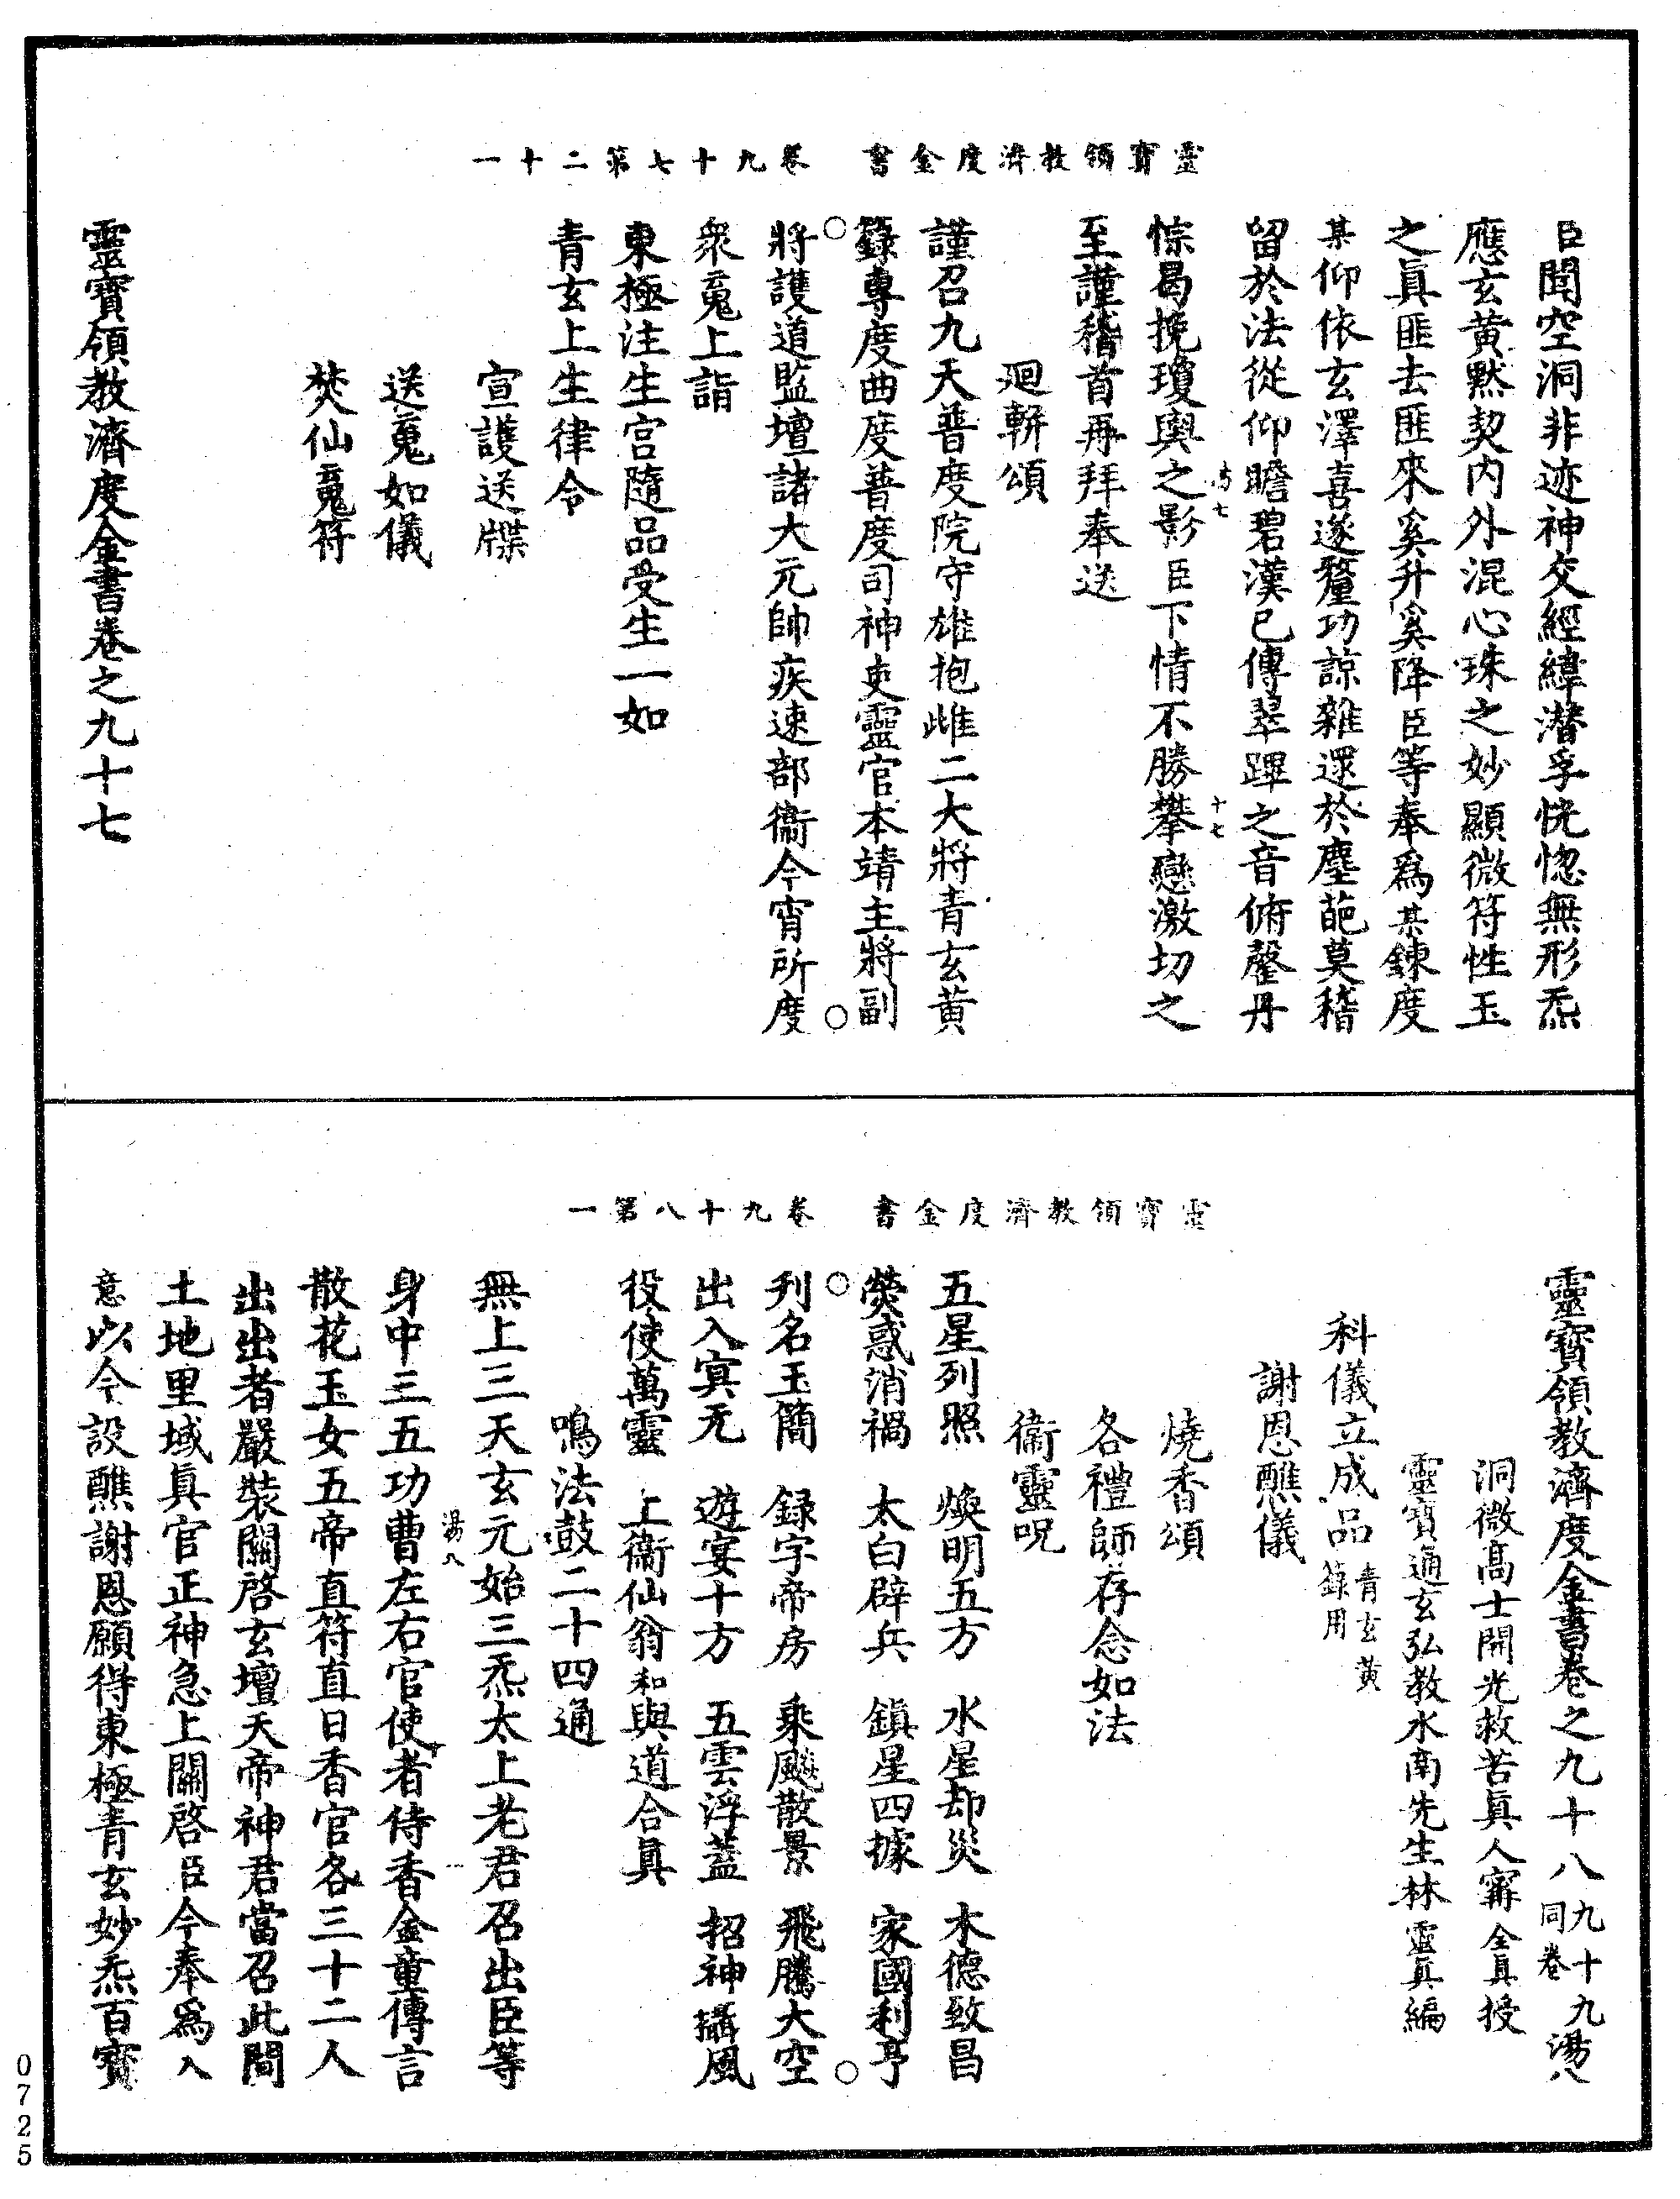 靈寶領教濟度金書　卷九十七第二十一
臣聞空洞非迹神交經緯潛孚恍惚無形炁
應玄黃默契內外混心珠之妙顯微符性玉
之眞匪去匪來奚升奚降臣等奉爲某鍊度
某仰依玄澤喜遂釐功諒雜還於塵葩莫稽
留於法從仰瞻碧漢已傳翠蹕之音俯罄丹
悰曷挽瓊輿之影臣下情不勝攀戀激切之
至謹稽首再拜奉送
廻輧頌
謹召九天普度院守雄抱雌二大將青玄黃
籙專度曲度普度司神吏靈官本靖主將副
將護道監壇諸大元帥疾速部衞今宵所度
衆䰟上詣
東極注生宮隨品受生一如
青玄上生律令
宣護送牒
送䰟如儀
焚仙䰟符
靈寶領教濟度金書卷之九十七
靈寶領教濟度金書　卷九十八第一
靈寶領教濟度金書卷之九十八 九十九同卷 湯八
洞微高士開光救苦眞人甯全眞授
靈寶通玄弘教水南先生林靈眞編
科儀立成品 青玄黃籙用
謝恩醮儀
燒香頌
各禮師存念如法
衞靈呪
五星列照　煥明五方　水星却災　木德致昌
熒惑消禍　太白辟兵　鎭星四據　家國利亨
刋名玉簡　録字帝房　乘飈散景　飛騰大空
出入冥无　遊宴十方　五雲浮蓋　招神攝風
役使萬靈　上衞仙翁和與道合眞
鳴法鼓二十四通
無上三天玄元始三炁太上老君召出臣等
身中三五功曹左右官使者侍香金童傳言
散花玉女五帝直符直日香官各三十二人
出出者嚴裝關啓玄壇天帝神君當召此間
土地里域眞官正神急上關啓臣今奉爲入
意以今設醮謝恩願得東極青玄妙炁百寶
0725